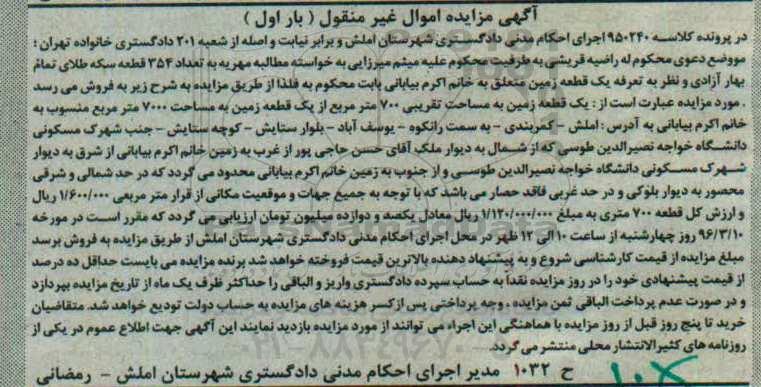 آگهی مزایده اموال غیر منقول ( بار اول )
در پرونده کلاسه ۹۵۰۲۴۰ اجرای احکام مدنی دادگستری شهرستان املش و برابر نیابت و اصله از شعبه ۲۰۱ دادگستری خانواده تهران ؛
مووضع دعوی محکوم له راضیه قریشی به طرفیت محکوم علیه میثم میرزایی به خواسته مطالبه مهریه به تعداد ۳۵۴ قطعه سکه طلای تمام
بهار آزادی و نظر به تعرفه یک قطعه زمین متعلق به خانم اکرم بیابانی بابت محکوم به فلذا از طریق مزایده به شرح زیر به فروش می رسد
. مورد مزایده عبارت است از : یک قطعه زمین به مساحت تقریبی ۷۰۰ متر مربع از یک قطعه زمین به مساحت ۷۰۰۰ متر مربع منسوب به
خانم اکرم بیابانی به آدرس : املش - کمربندی - به سمت رانکوه - یوسف آباد - بلوار ستایش - کوچه ستایش - جنب شهرک مسکونی
دانشگاه خواجه نصیرالدین طوسی که از شمال به دیوار ملک آقای حسن حاجی پور از غرب به زمین خانم اکرم بیابانی از شرق به دیوار
شهرک مسکونی دانشگاه خواجه نصیرالدین طوسی و از جنوب به زمین خانم اکرم بیابانی محدود می گردد که در حد شمالی و شرقی
محصور به دیوار بلوکی و در حد غربی فاقد حصار می باشد که با توجه به جمیع جهات و موقعیت مکانی از قرار متر مربعی ۱/۶۰۰/۰۰۰ ریال
و ارزش کل قطعه ۷۰۰ متری به مبلغ ۱/۱۲۰/۰۰۰/۰۰۰ ریال معادل یکصد و دوازده میلیون تومان ارزیابی می گردد که مقرر است در مورخه
۹۶/۳/۱۰ روز چهارشنبه از ساعت ۱۰ الی ۱۲ ظهر در محل اجرای احکام مدنی دادگستری شهرستان املش از طریق مزایده به فروش برسد
مبلغ مزایده از قیمت کارشناسی شروع و به پیشنهاد دهنده بالاترین قیمت فروخته خواهد شد برنده مزایده می بایست حداقل ده درصد
از قیمت پیشنهادی خود را در روز مزایده نقداً به حساب سپرده دادگستری واریز و الباقی را حداکثر ظرف یک ماه از تاریخ مزایده بپردازد
و در صورت عدم پرداخت الباقی ثمن مزایده ، وجه پرداختی پس از کسر هزینه های مزایده به حساب دولت تودیع خواهد شد. متقاضیان
خرید تا پنج روز قبل از روز مزایده با هماهنگی این اجراء می توانند از مورد مزایده بازدید نمایند این آگهی جهت اطلاع عموم در یکی از
روزنامه های کثیرالانتشار محلی منتشر می گردد.
ح ۱۰۳۲ مدیر اجرای احکام مدنی دادگستری شهرستان املش - رمضانی